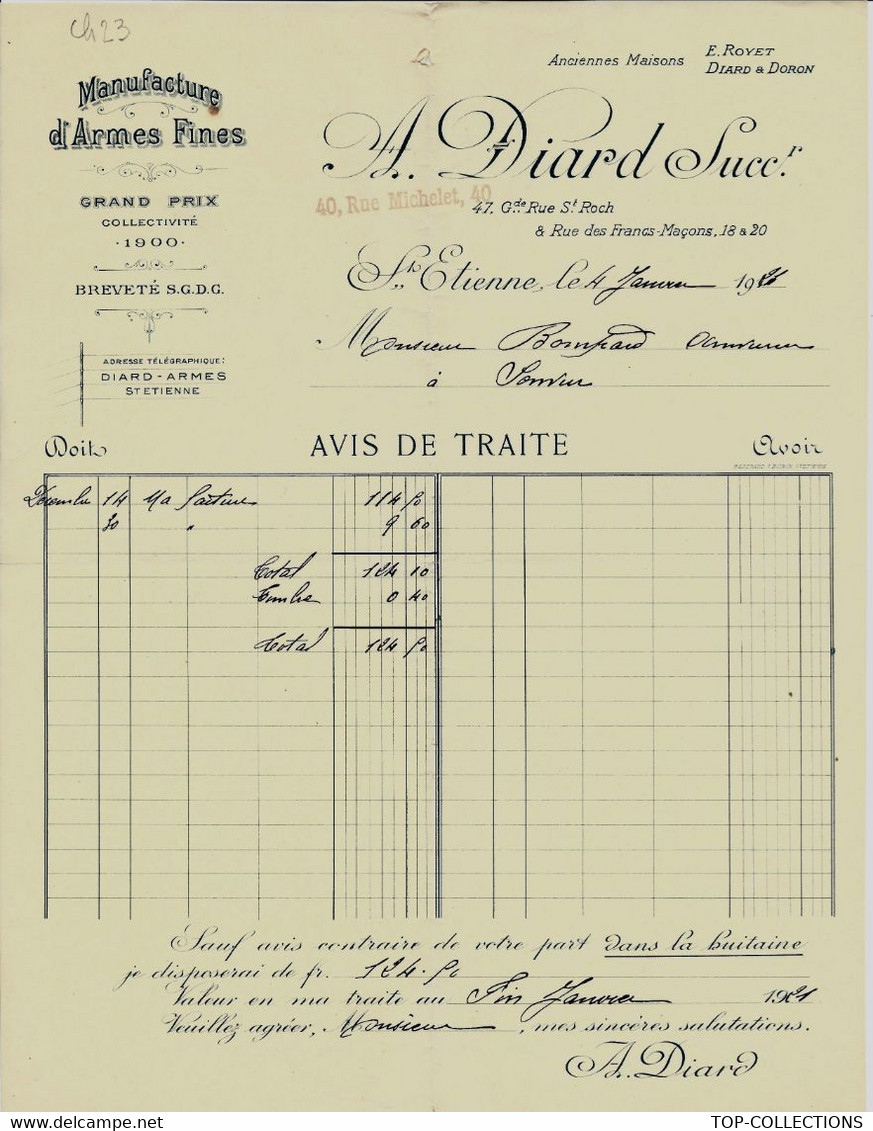 Ch 23
Manufacture
d'Armes Fines
GRAND PRIX
COLLECTIVITÉ
·1900·
BREVETÉ S.G.D.G.
ADRESSE TÉLÉGRAPHIQUE:
DIARD-ARMES
ST ETIENNE
Anciennes Maisons E. ROYET
DIARD & DORON
A. Diard Succr.
40, Rue Michelet, 40
47, Gde Rue St Roch
& Rue des Francs-Maçons, 18 & 20
St Etienne, le 4 Janvier 1921
Monsieur
à
Doit AVIS DE TRAITE Avoir
Décembre 14 Ma facture 114 50
30 " 9 60
Total 124 10
Timbre 0 40
Total 124 50
Sauf avis contraire de votre part dans la huitaine
je disposerai de fr. 124.50
Valeur en ma traite au Fin Janvier 1921
Veuillez agréer, Monsieur, mes sincères salutations.
A. Diard
TOP-COLLECTIONS